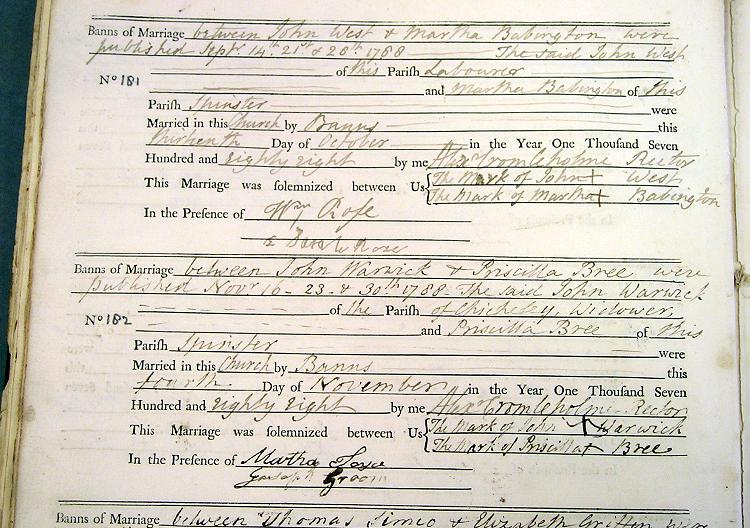 Banns of Marriage between John West & Martha Babington were
published Septr. 14th. 21st & 28th 1788 The said John West
of this Parish Labourer
No 181
and Martha Babington of this
Parish Spinster were
Married in this Church by Banns this
thirteenth Day of October in the Year One Thousand Seven
Hundred and Eighty Eight by me Alexr Cromleholme Rector
This Marriage was solemnized between Us The Mark of John + West
The Mark of Martha + Babington
In the Presence of Wm Rose
Rose
Banns of Marriage between John Warwick & Priscilla Bree were
published Novr 16 23 & 30th 1788 The said John Warwick
of the Parish of Chicheley, Widower,
No 182
and Priscilla Bree of this
Parish Spinster were
Married in this Church by Banns this
fourth Day of November in the Year One Thousand Seven
Hundred and Eighty Eight by me Alexr Cromleholme Rector
This Marriage was solemnized between Us The Mark of John X Warwick
The Mark of Priscilla + Bree
In the Presence of Martha
Joseph Groom
Banns of Marriage between Thomas Simco & Elizabeth Griffin were